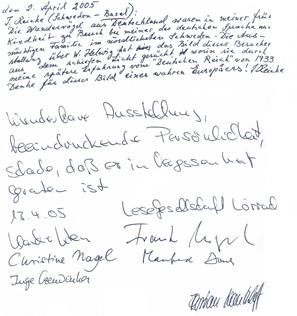 den 2. April 2005
J. Reinke (Schweden - Basel):
Die Wandervögel aus Deutschland waren in meiner früh
Kindheit zu Besuch bei meiner der deutschen Sprache
mächtigen Familie im nördlichsten Schweden. Die Aus-
stellung über W. Helwig hat das Bild dieser Besucher
aus dem schiefen Licht gerückt worin sie durch
meine spätere Erfahrung vom "Deutschen Reich" von 1933
Danke für diese Bild eines wahren Europäers!
Wunderbare Ausstellung,
beeindruckende Persönlichkeit,
schade, daß er in Vergessenheit
geraten ist
13.4.05 Lesegesellschaft Lörrach
Frank
Christine Nagel Manfred
Inge